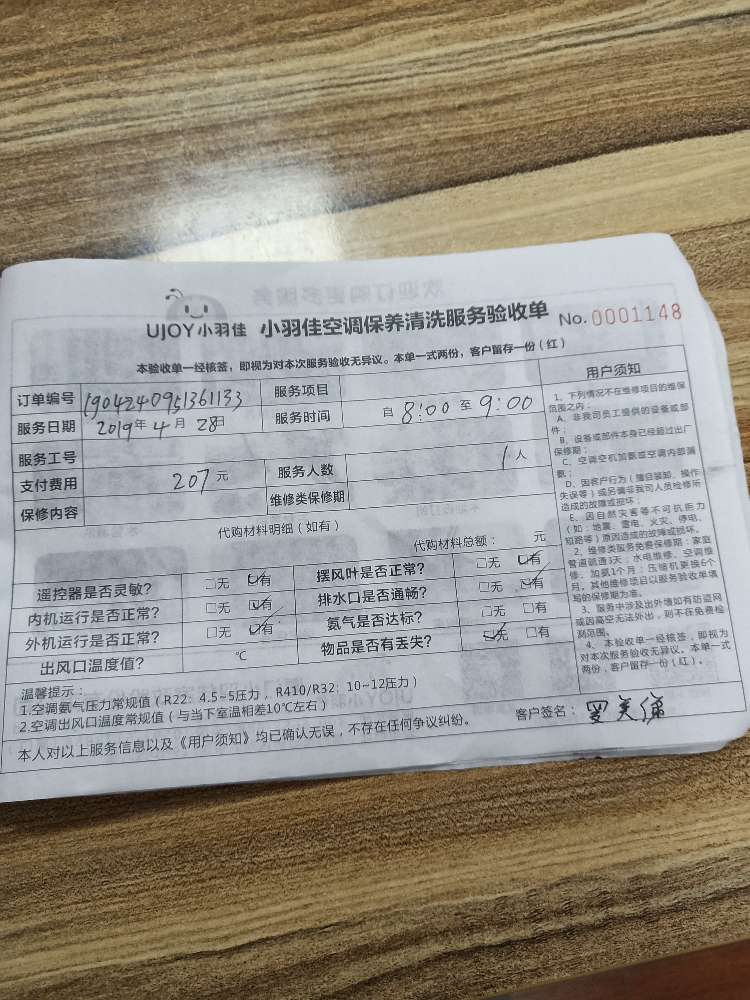 UJOY小羽佳 小羽佳空调保养清洗服务验收单 No.0001148
本验收单一经核签，即视为对本次服务验收无异议。本单一式两份，客户留存一份（红）
订单编号 1904240951361133 服务项目
服务日期 2019年4月28日 服务时间 自 8:00 至 9:00
服务工号
支付费用 207元 服务人数 1人
保修内容 维修类保修期
代购材料明细（如有）
代购材料总额： 元
遥控器是否灵敏？ □无 ☑有 摆风叶是否正常？ □无 ☑有
内机运行是否正常？ □无 ☑有 排水口是否通畅？ □无 ☑有
外机运行是否正常？ □无 ☑有 氨气是否达标？ □无 □有
出风口温度值？ ℃ 物品是否有丢失？ ☑无 □有
温馨提示：
1.空调氨气压力常规值（R22：4.5~5压力，R410/R32：10~12压力）
2.空调出风口温度常规值（与当下室温相差10℃左右）
本人对以上服务信息以及《用户须知》均已确认无误，不存在任何争议纠纷。 客户签名：
用户须知
1、下列情况不在维修项目的维保
范围之内：
A、非我司员工提供的设备或部
件；
B、设备或部件本身已经超过出厂
保修期；
C、空调空机加氨或空调内部漏
氨；
D、因客户行为（擅自装卸、操作
失误等）或另请非我司人员检修所
造成的故障或损坏；
E、因自然灾害等不可抗拒力
（如：地震、雷电、火灾、停电、
短路等）原因造成的故障或损坏。
2、维修类服务免费保修期：家庭
管道疏通3天；水电维修、空调维
修、加氨1个月；压缩机更换6个
月，其他维修项目以服务验收单填
写的保修期为准。
3、服务中涉及出外墙如有防盗网
或因高空无法外出，则不在免费检
测范围。
4、本验收单一经核签，即视为
对本次服务验收无异议。本单一式
两份，客户留存一份（红）。